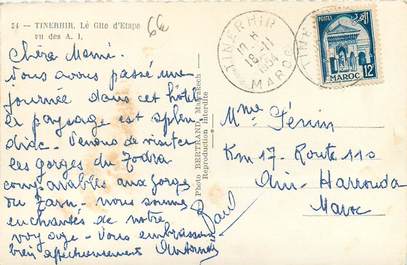 24 - TINERHIR. Le Gîte d'Etape
vu des A. I.
66
Chère Mamie.
Nous avons passé une
journée dans cet hôtel
le paysage est splen-
dide. Venons de visiter
les gorges du Todra
comparables aux gorges
du Tarn - nous sommes
enchantés de notre
voyage - Vous embrassons
bien affectueusement
Photo BERTRAND, Marrakech
Reproduction interdite
TINERHIR
MAROC
18 -11
1954
POSTES
MAROC 12F
Mme Génin
Km 17 - Route 110
Aïn-Harrouda
Maroc